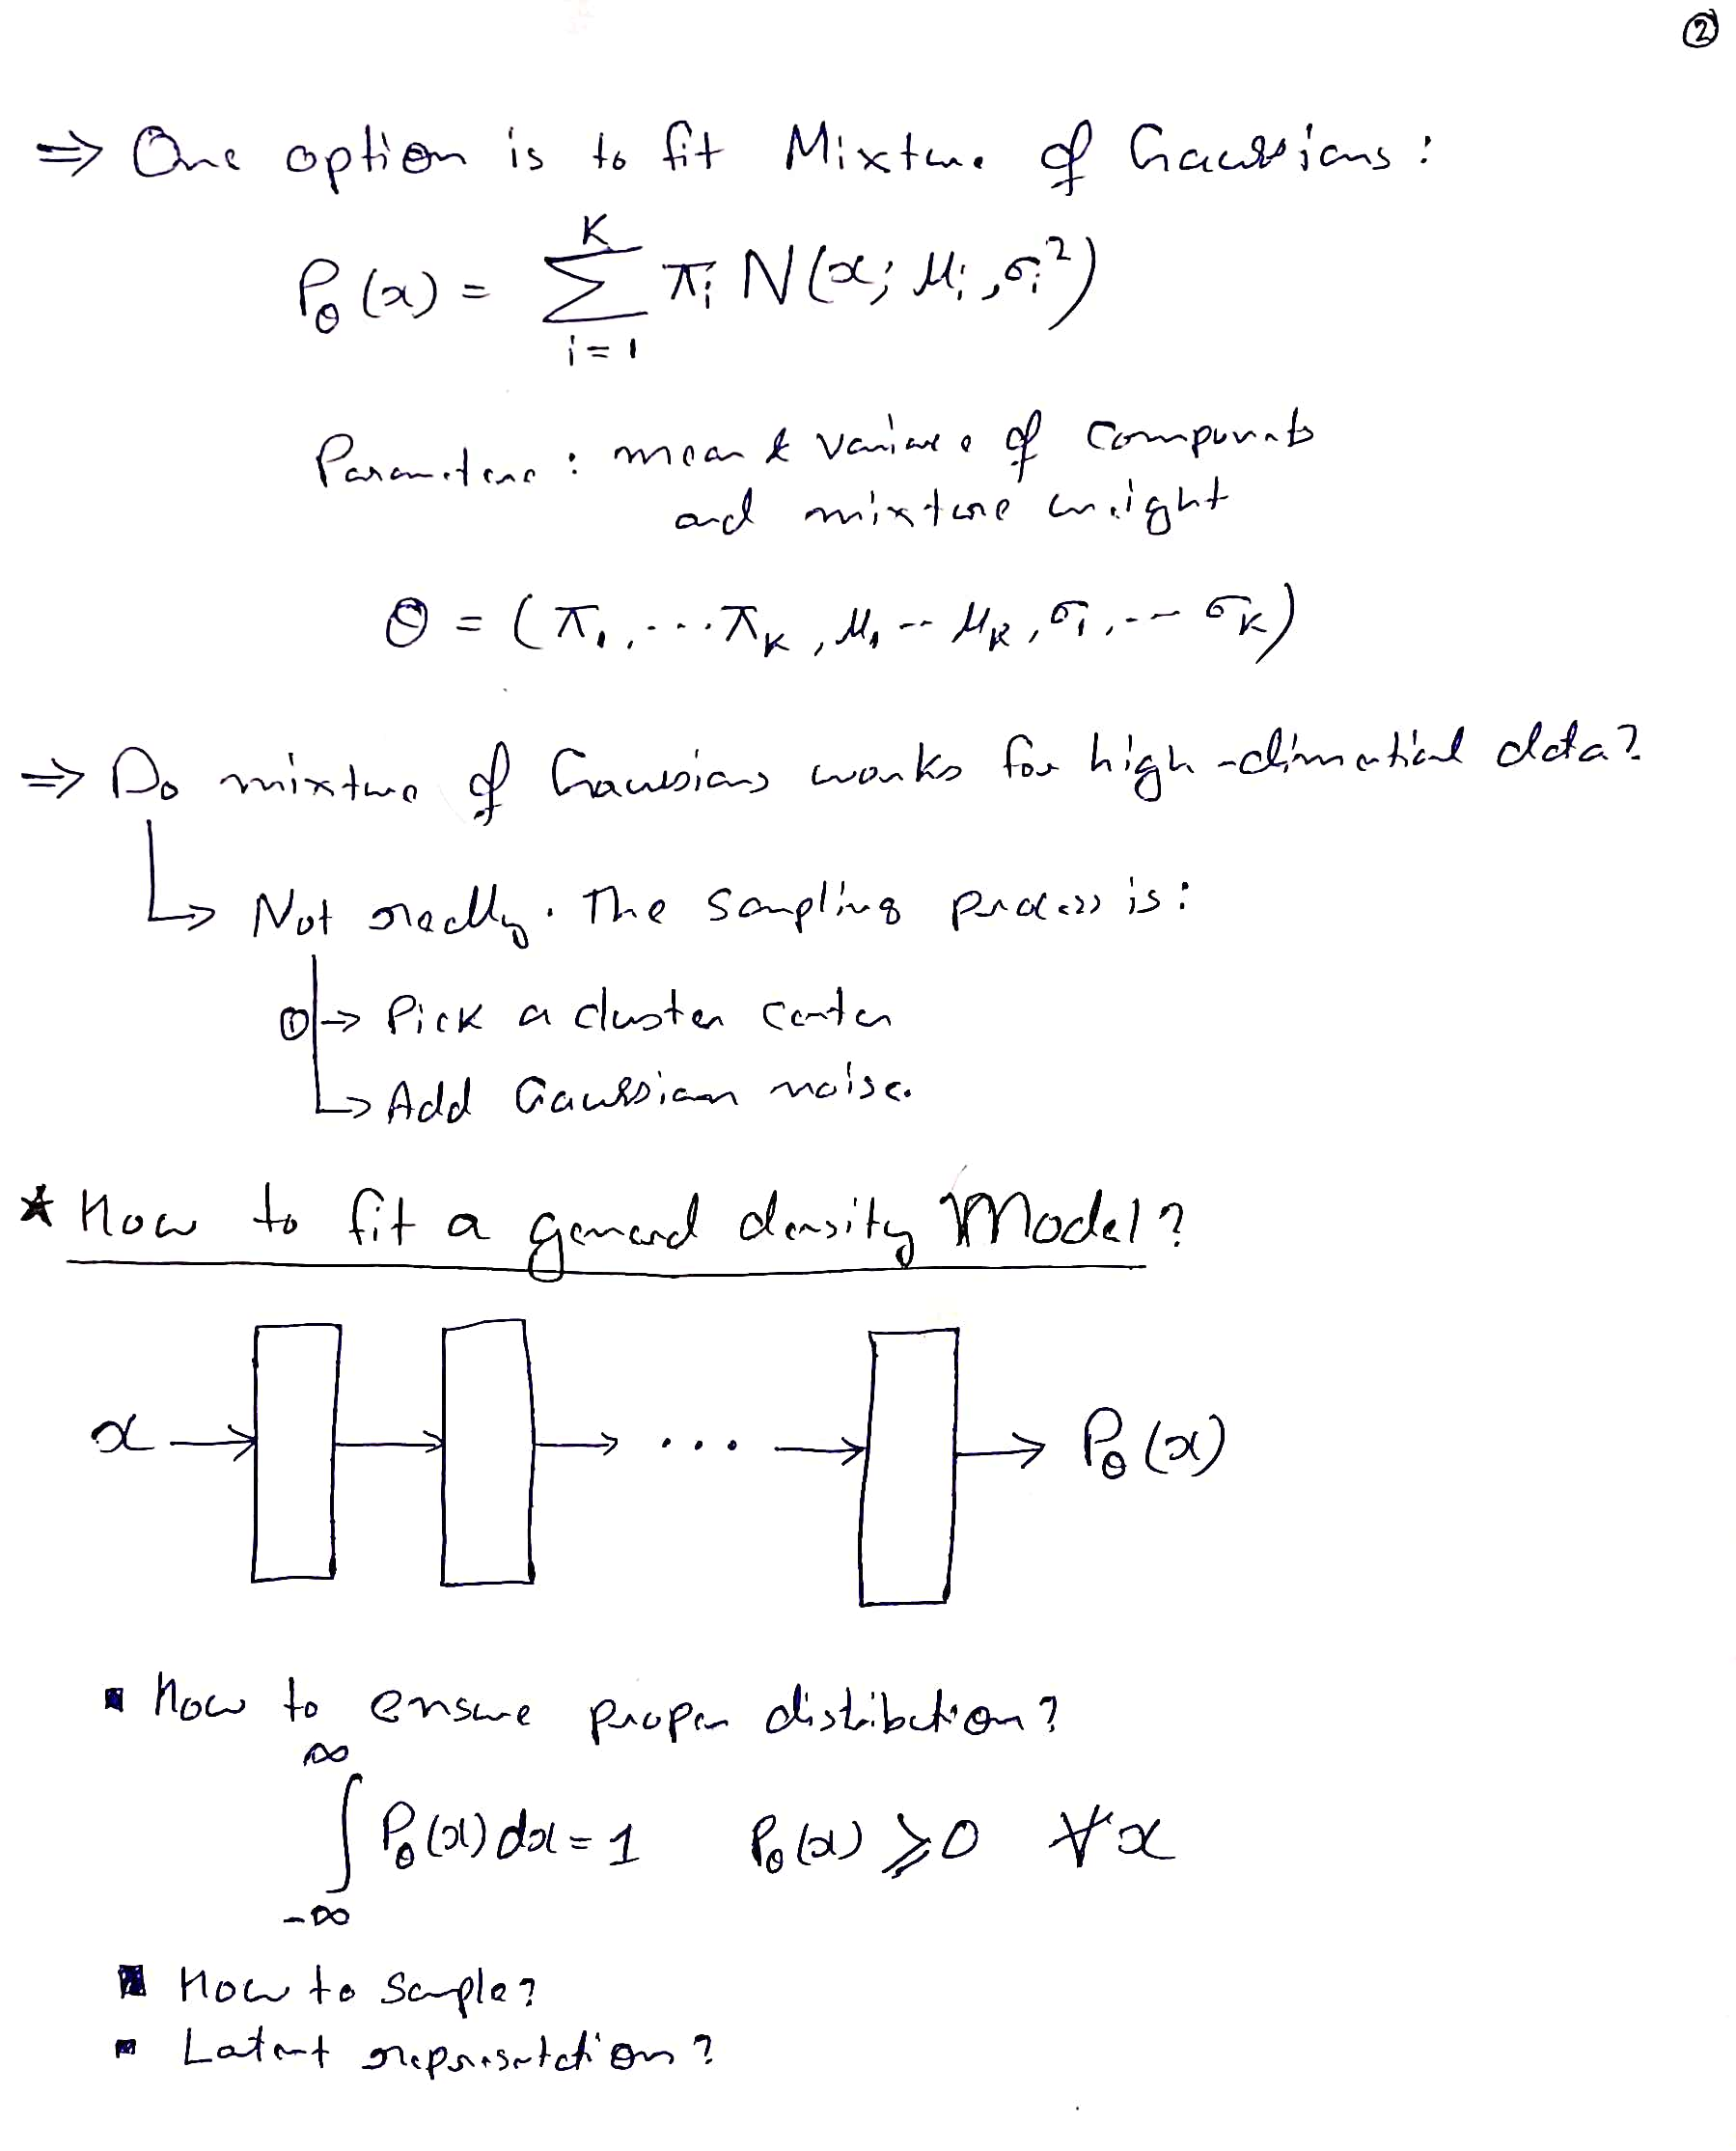 ②
⇒ One option is to fit Mixture of Gaussians:
P_θ(x) = Σ_{i=1}^{K} π_i N(x; μ_i, σ_i²)
Parameters: mean & variance of components
and mixture weight
θ = (π_1, ... π_K, μ_1 -- μ_K, σ_1, -- σ_K)
⇒ Do mixture of Gaussians works for high-dimentional data?
↳ Not really. The sampling process is:
① → Pick a cluster center
↳ Add Gaussian noise.
* How to fit a general density Model?
x → → → ... → → P_θ(x)
▪ How to ensure proper distribution?
∫_{-∞}^{∞} P_θ(x) dx = 1 P_θ(x) ⩾ 0 ∀x
▪ How to sample?
▪ Latent representation?